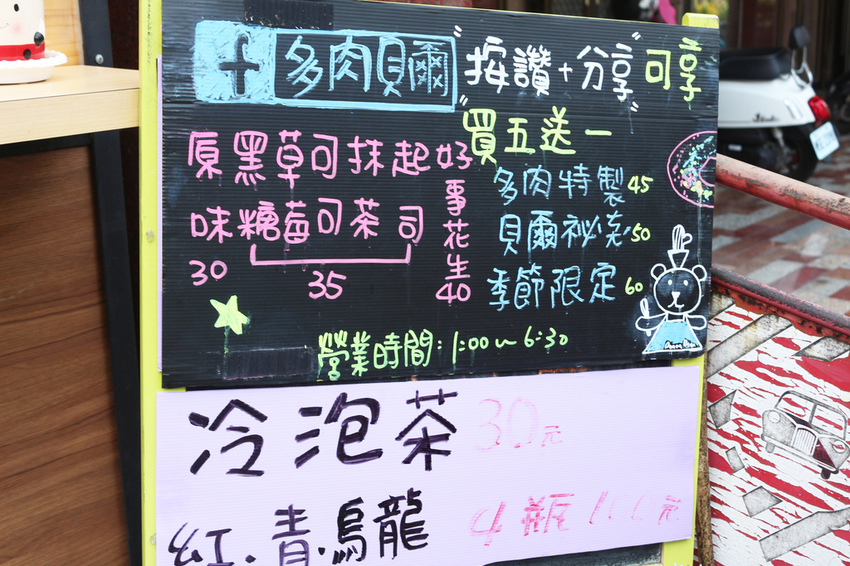 f 多肉貝爾 "按讚+分享" 可享
買五送一
原味 30
黑糖
草莓
可可
抹茶
起司
35
好事花生 40
多肉特製 45
貝爾祕 50
季節限定 60
營業時間:1:00~6:30
冷泡茶 30元
紅.青.烏龍 4瓶 元